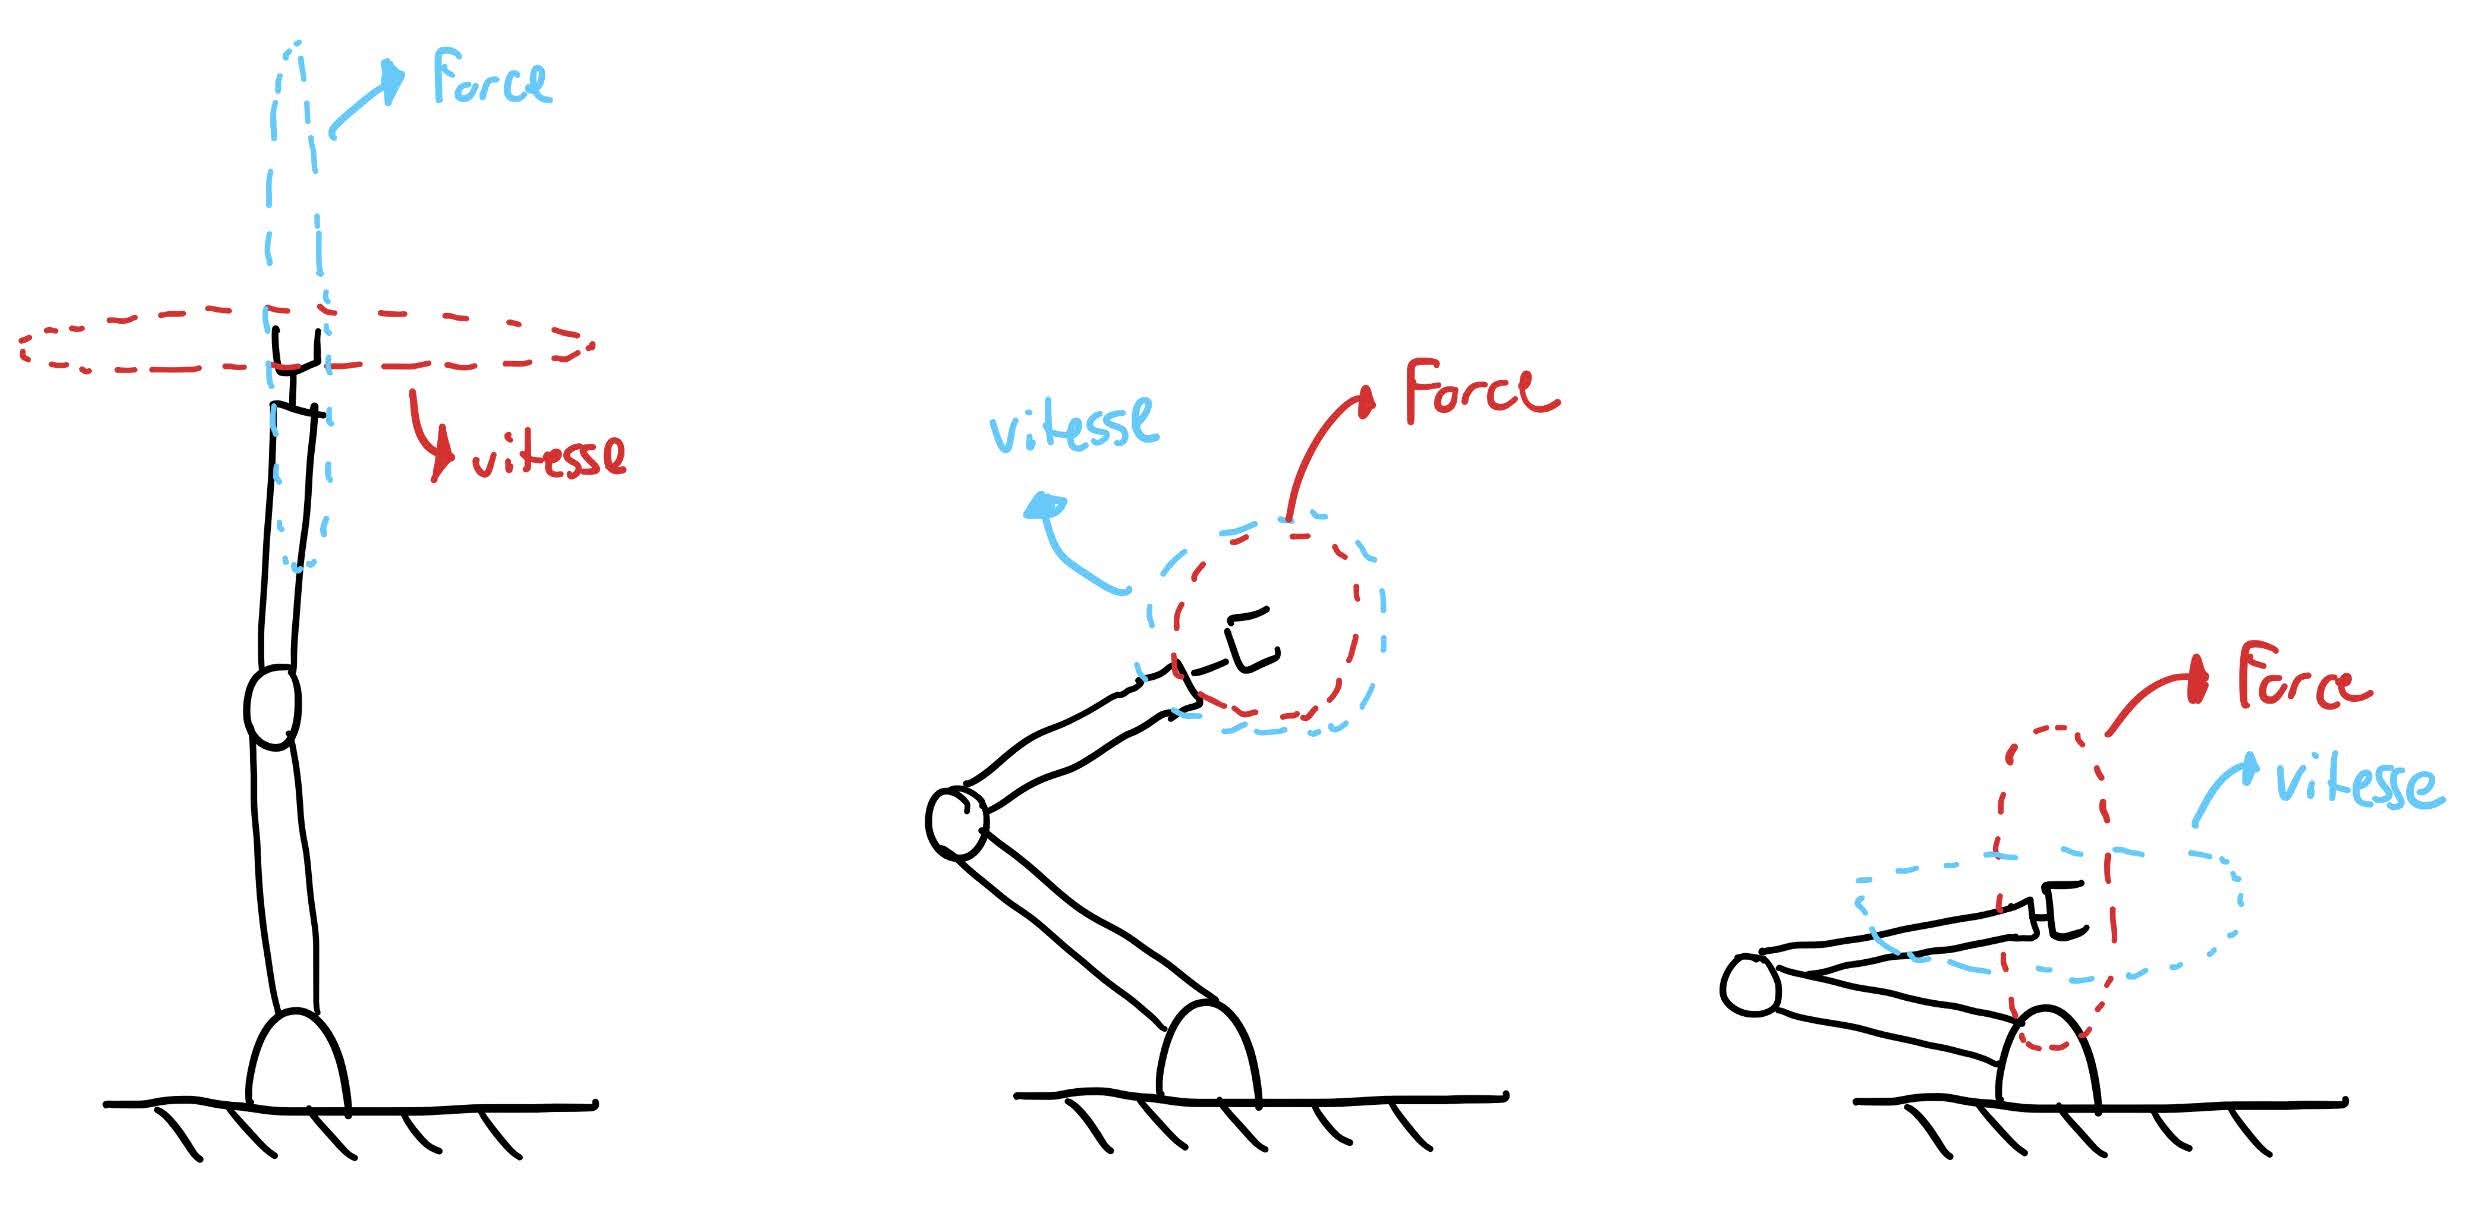 Force
vitesse
vitesse
Force
Force
vitesse